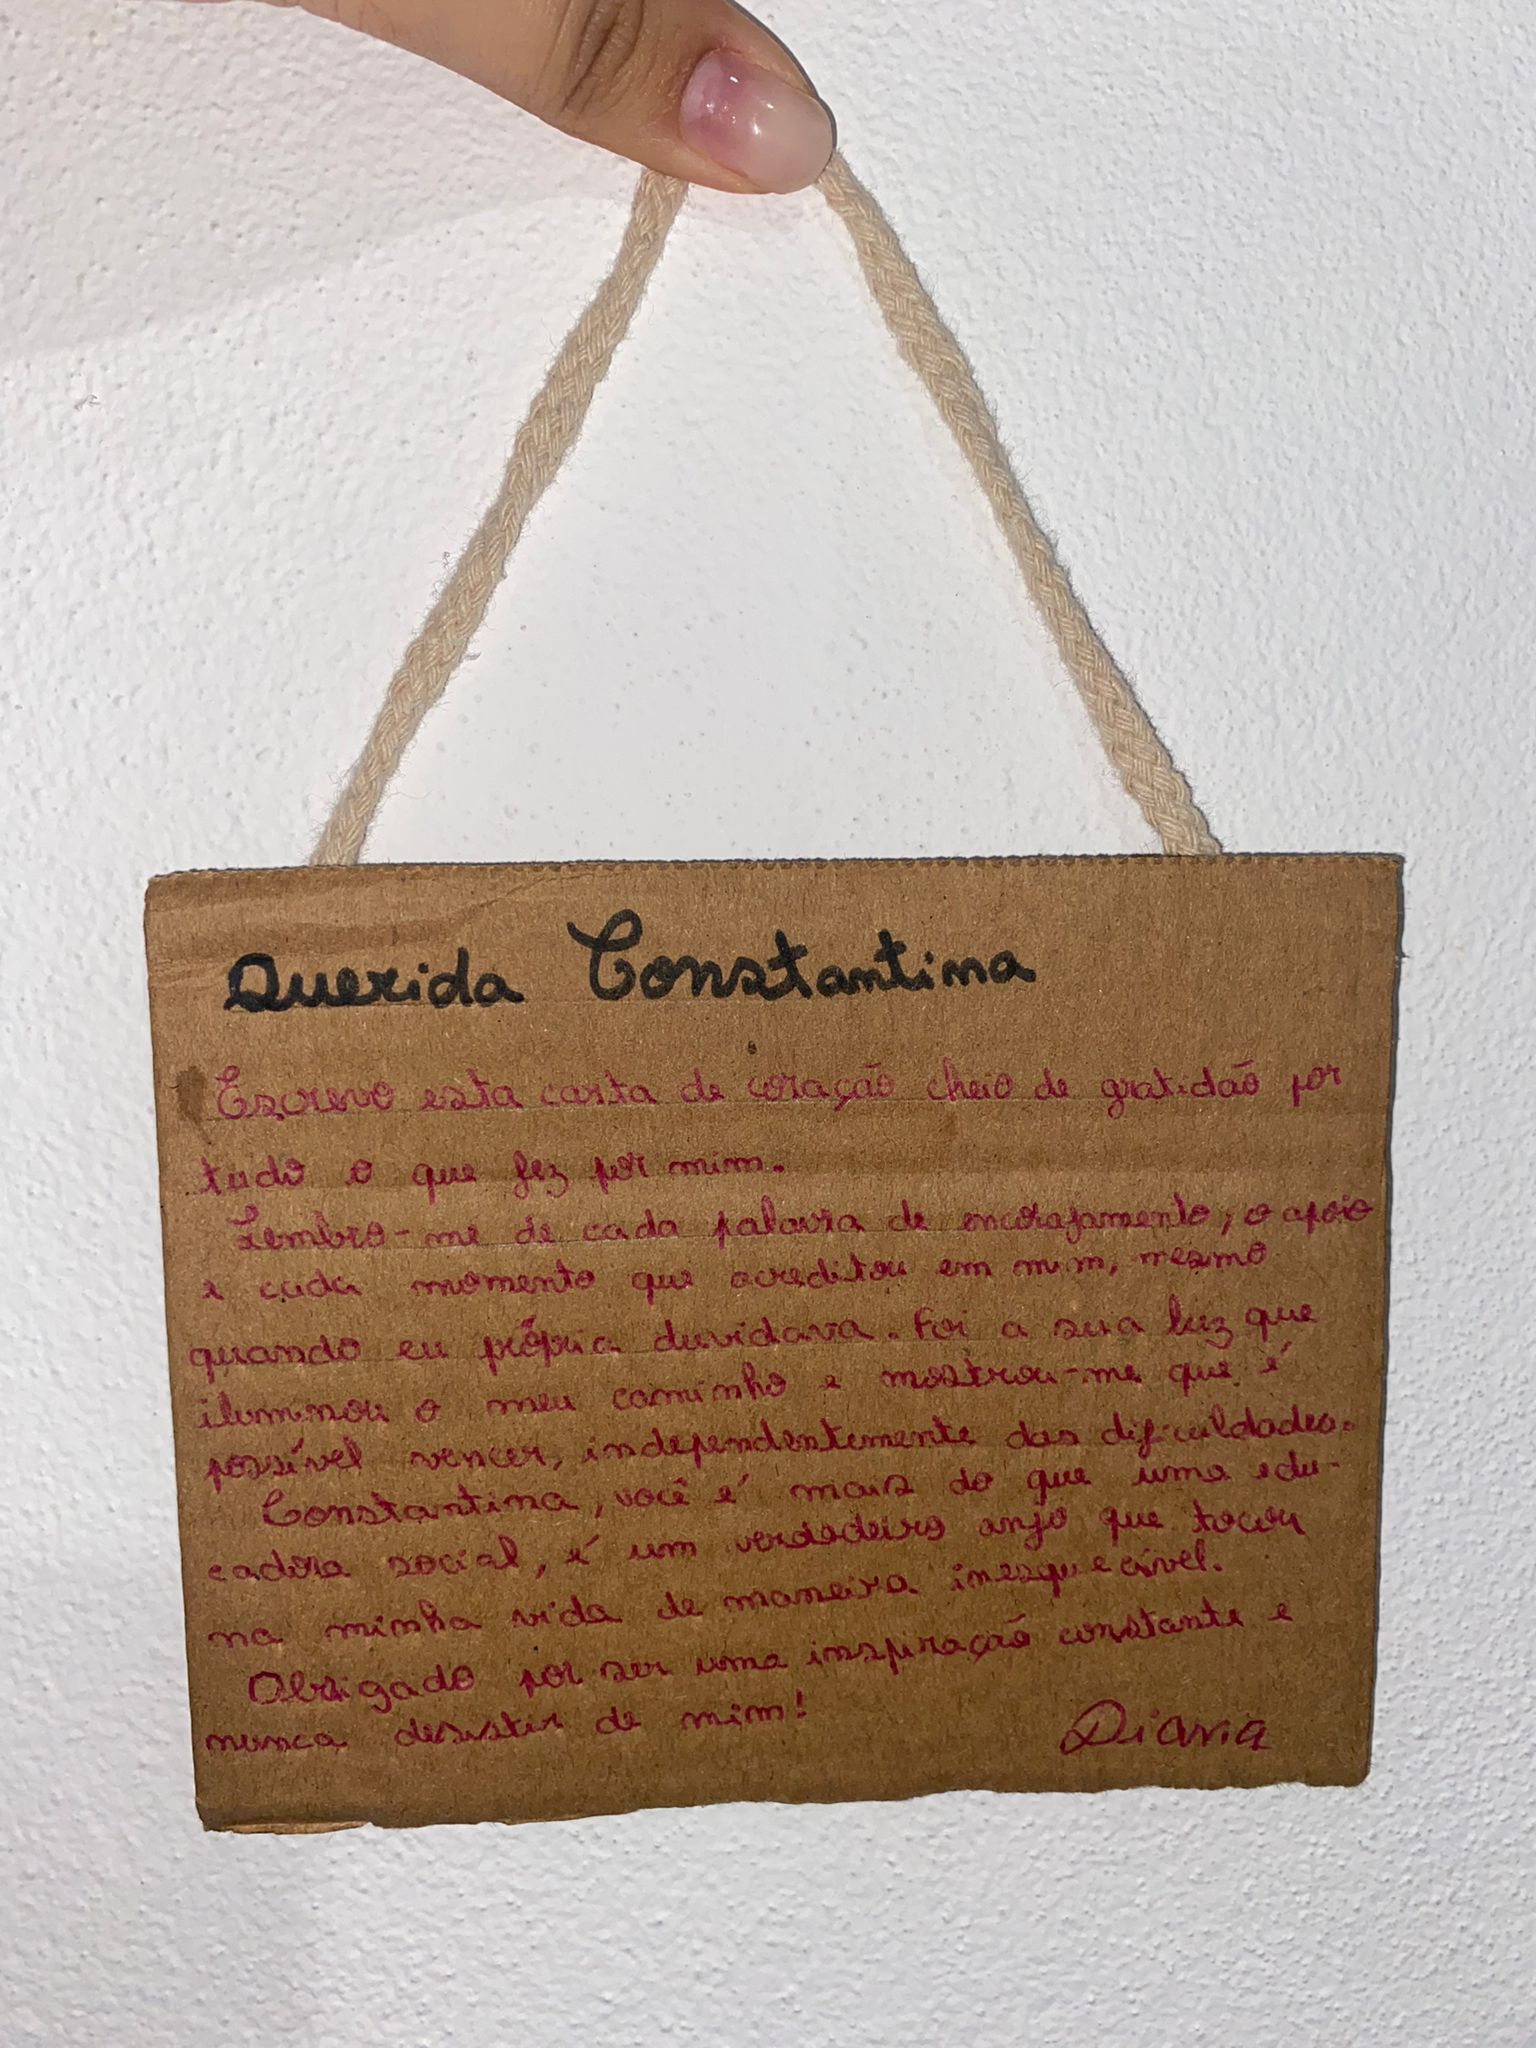 Querida Constantina
Escrevo esta carta de coração cheio de gratidão por
tudo o que fez por mim.
Lembro-me de cada palavra de encorajamento, o apoio
e cada momento que acreditou em mim, mesmo
quando eu própria duvidava. Foi a sua luz que
iluminou o meu caminho e mostrou-me que é
possível vencer, independentemente das dificuldades.
Constantina, você é mais do que uma edu-
cadora social, é um verdadeiro anjo que tocou
na minha vida de maneira inesquecível.
Obrigado por ser uma inspiração constante e
nunca desistir de mim!
Diana